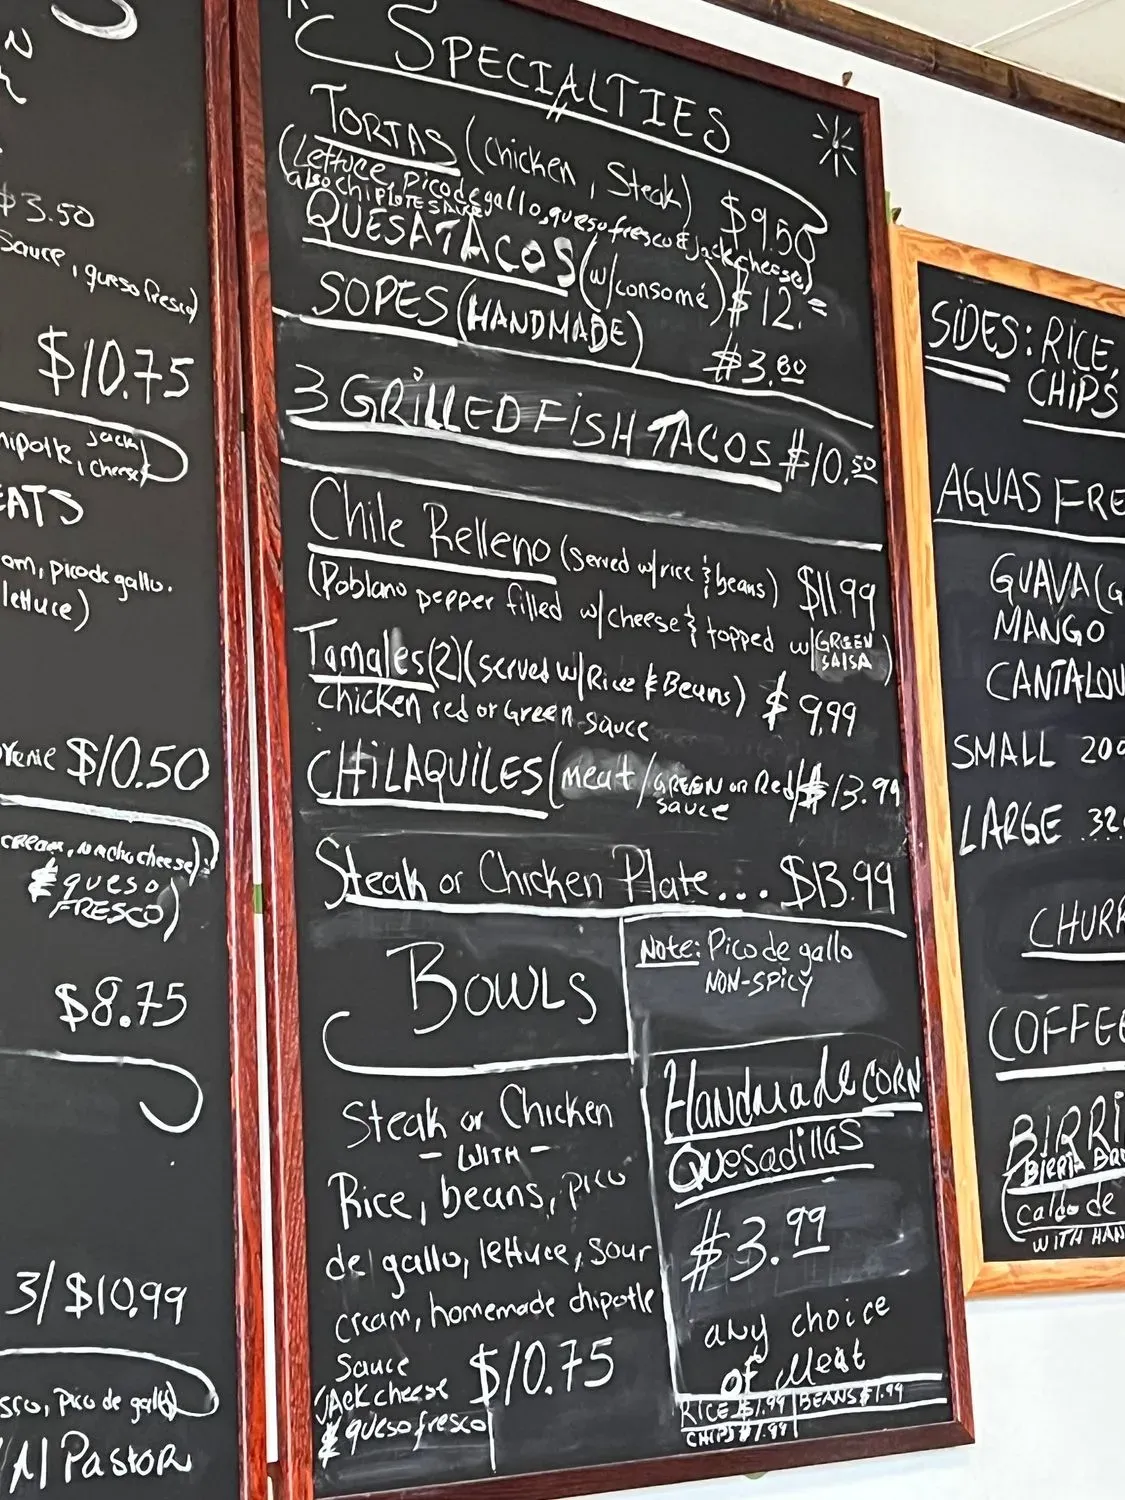 $3.50
sauce, queso fresco)
$10.75
Jack
chipotle, cheese)
lettuce)
$10.50
cream, nacho cheese)
& queso
FRESCO)
$8.75
3/$10.99
pico de gallo)
/Al PastoR
SPECIALTIES
TORTAS (chicken, Steak) $9.50
(Lettuce, pico de gallo, queso fresco & jack cheese)
also chiPLOTE SAUCE
QUESATACOS (w/consomé) $12.=
SOPES (HANDMADE) $3.80
3 GRiLLED FiSH TACOS $10.50
Chile Relleno (served w/rice & beans) $11.99
(Poblano pepper filled w/cheese & topped w/GREEN SALSA)
Tamales (2) (served w/Rice & Beans) $9.99
chicken red or Green sauce
CHiLAQUiLES (meat/GREEN or Red $13.99
sauce
Steak or Chicken Plate... $13.99
BOWLS
Steak or Chicken
- WITH -
Rice, beans, pico
de gallo, lettuce, sour
cream, homemade chipotle
Sauce
JACK cheese
& queso fresco
$10.75
Note: Pico de gallo
NON-SPICY
Handmade CORN
Quesadillas
$3.99
any choice
of Meat
RICE $1.99 BEANS $1.99
CHIPS $1.99
SiDES: RiCE,
CHiPS
AGUAS FRE
GUAVA (G
MANGO
CANTALOU
SMALL 20o
LARGE 32
CHURR
COFFEE
BIRRI
caldo de
WITH HAN